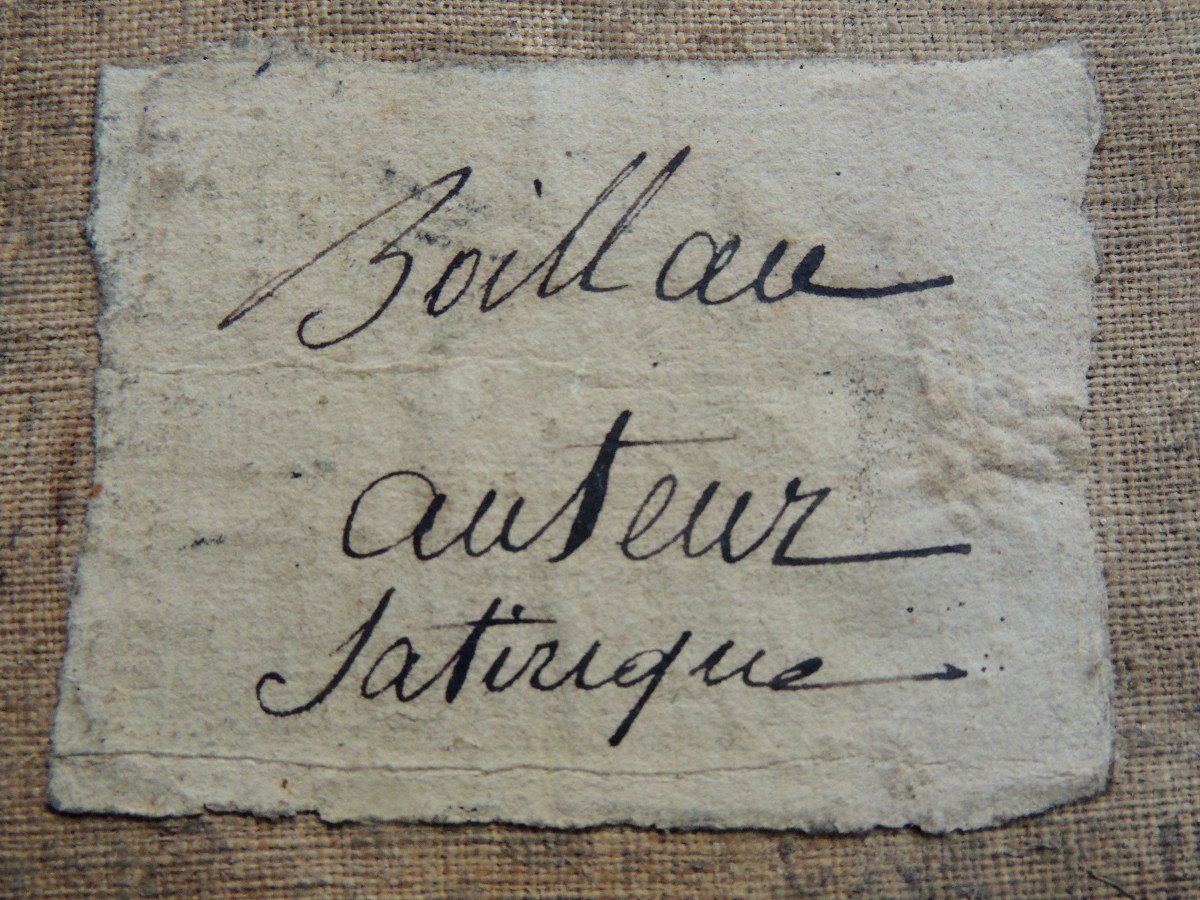 Boillau
auteur
Satirique